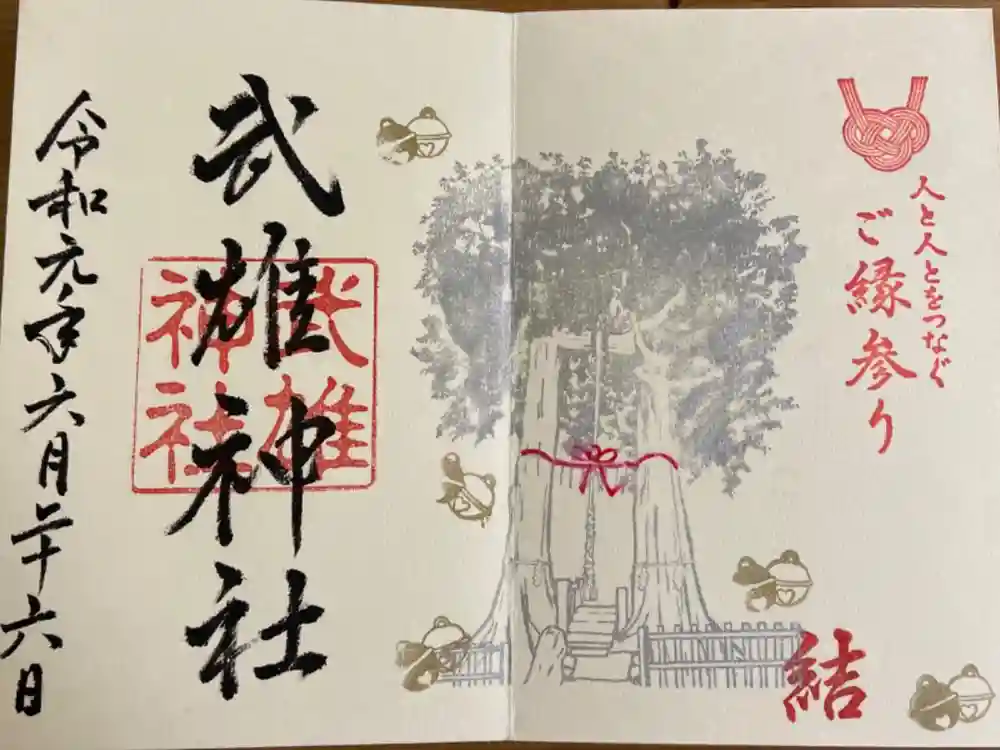 人と人とをつなぐ
ご縁参り
結
武雄神社
武雄
神社
令和元年六月二十六日